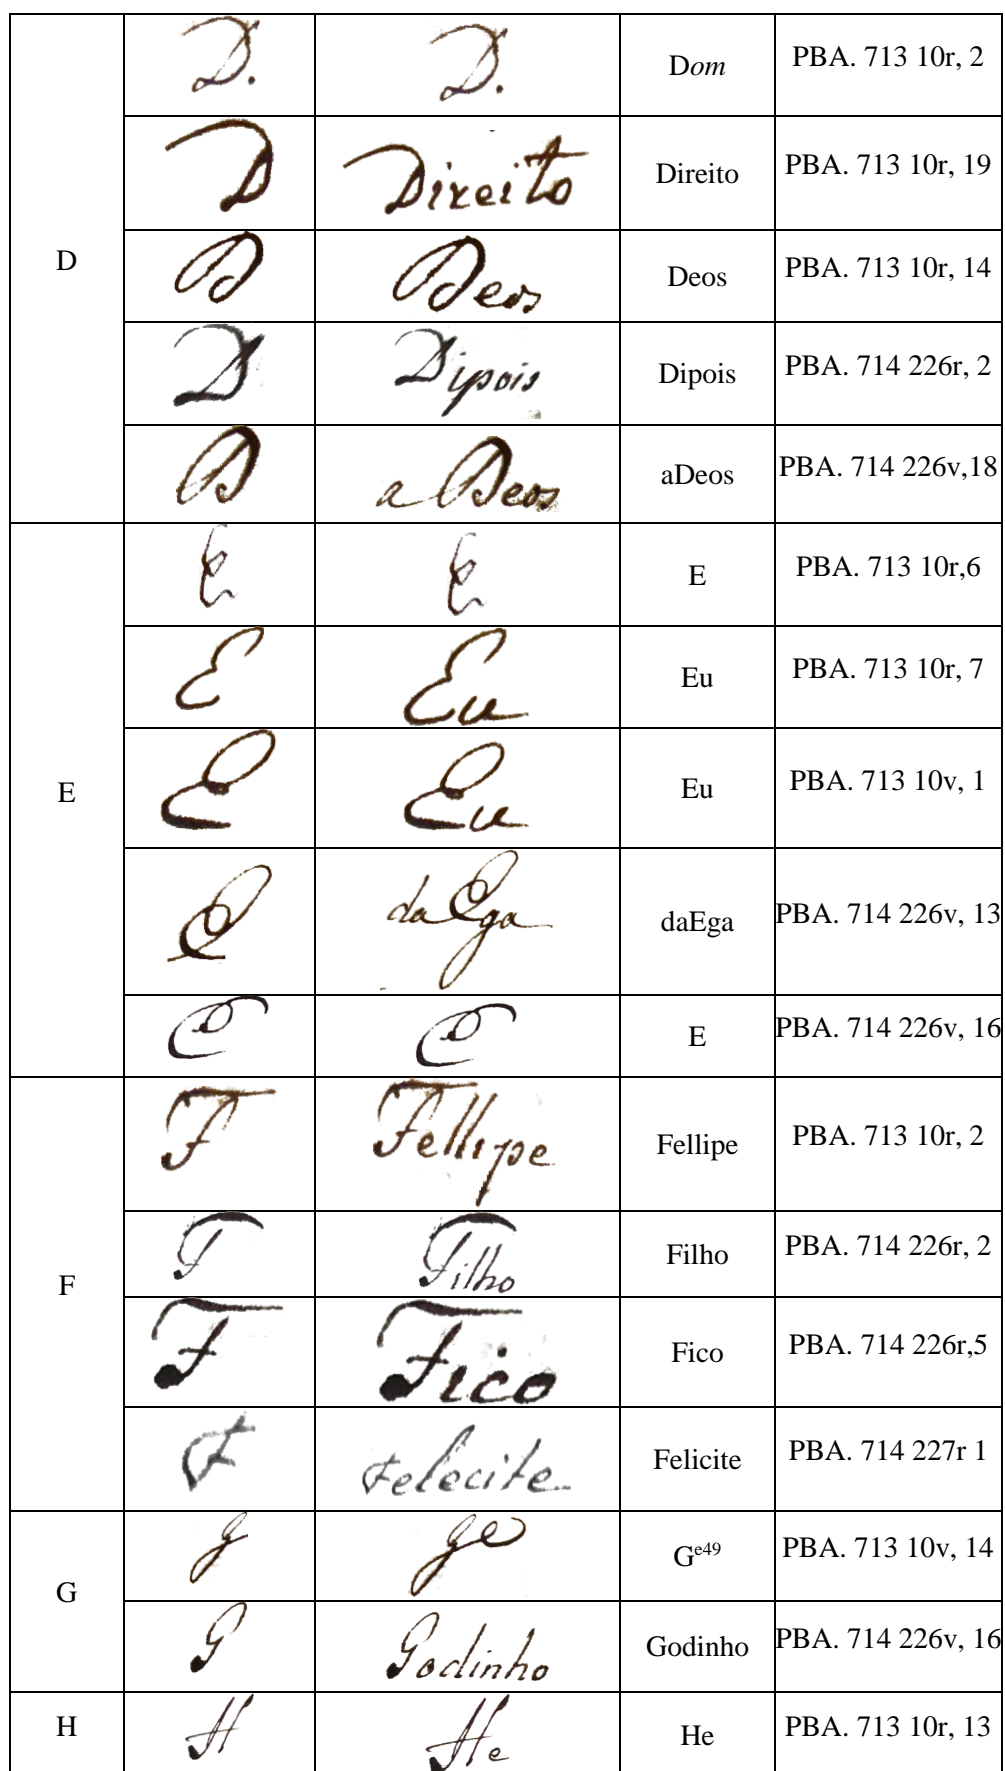 D D. D. Dom PBA. 713 10r, 2
D Direito Direito PBA. 713 10r, 19
D Deos Deos PBA. 713 10r, 14
D Dipois Dipois PBA. 714 226r, 2
D a Deos aDeos PBA. 714 226v,18
E E E E PBA. 713 10r,6
E Eu Eu PBA. 713 10r, 7
E Eu Eu PBA. 713 10v, 1
E da Ega daEga PBA. 714 226v, 13
E E E PBA. 714 226v, 16
F F Fellipe Fellipe PBA. 713 10r, 2
F Filho Filho PBA. 714 226r, 2
F Fico Fico PBA. 714 226r,5
F Felecite Felicite PBA. 714 227r 1
G g ge Ge49 PBA. 713 10v, 14
G Godinho Godinho PBA. 714 226v, 16
H H He He PBA. 713 10r, 13